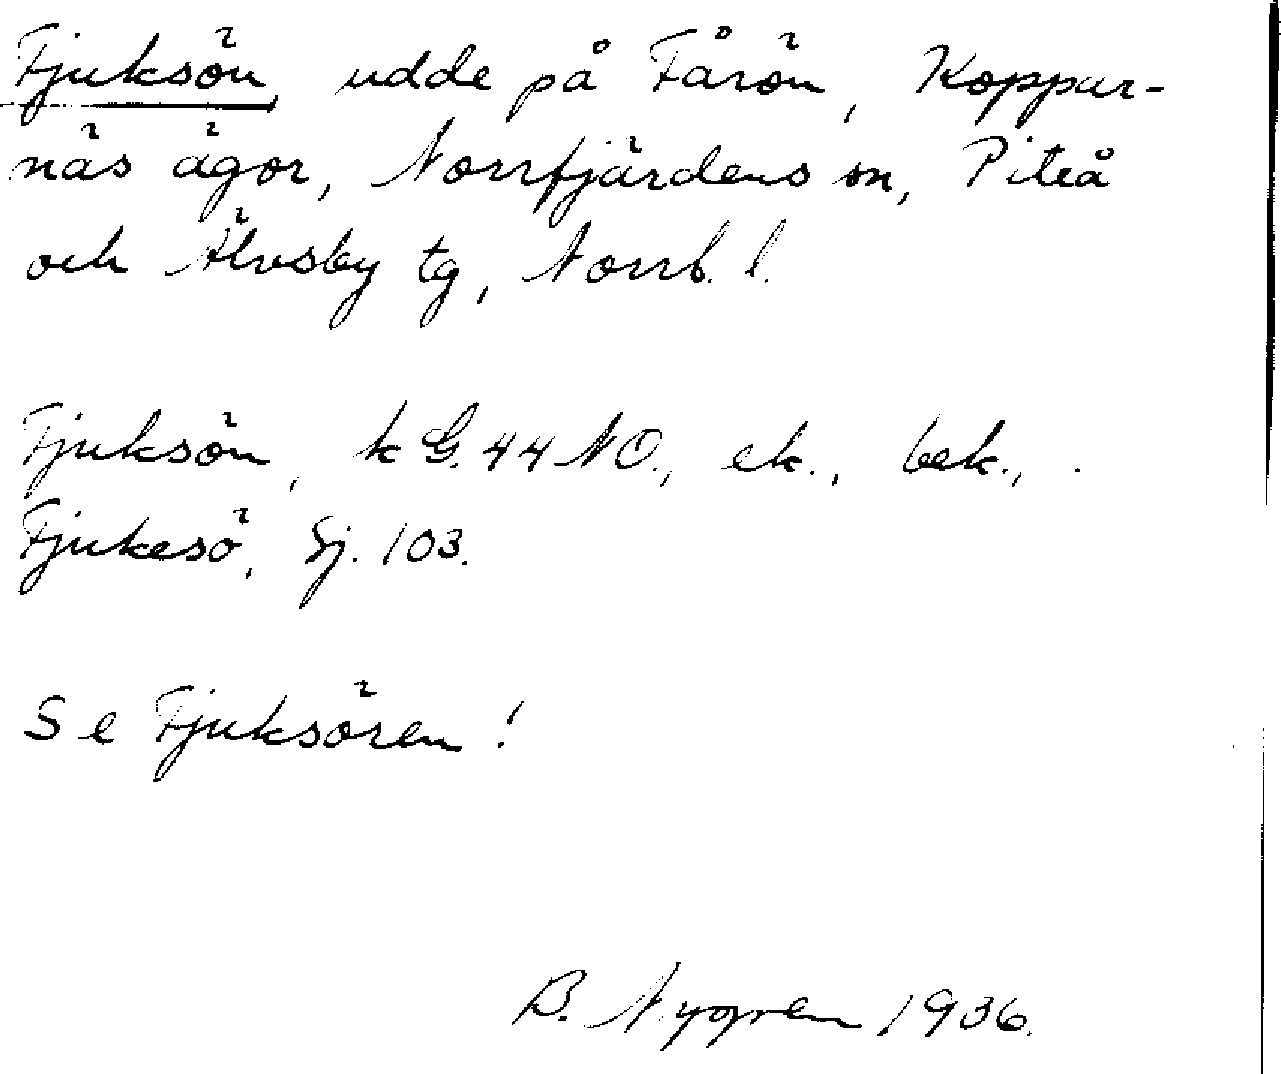 Fjuksön, udde på Fårön, Koppar-
näs ägor, Norrfjärdens sn, Piteå
och Älvsby tg, Norrb. l.
Fjuksön, k G. 44 NO., ek., bek.,
Fjukesö, Sj. 103.
Se Fjuksören!
B. Nygren 1936.